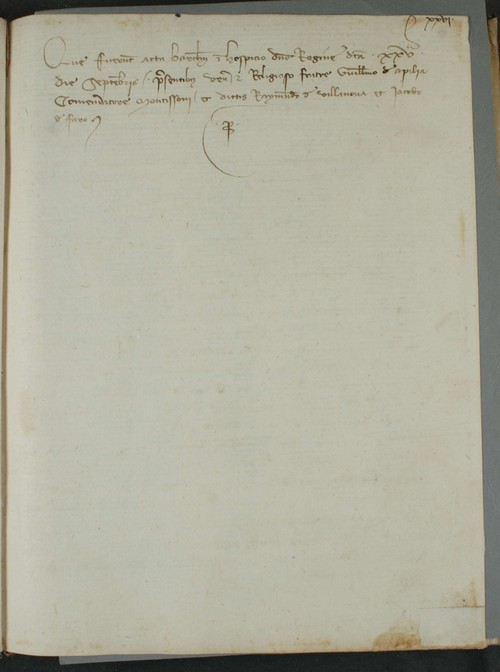 xxvi
Que fuerunt acta barchn i hospicio dne Regine dca xxv
die Septembris presentibus Religioso fratre Guillmo d apilia
Comendatore Montissoni et dictis Raymundo d villanova et Jacobo
d faro